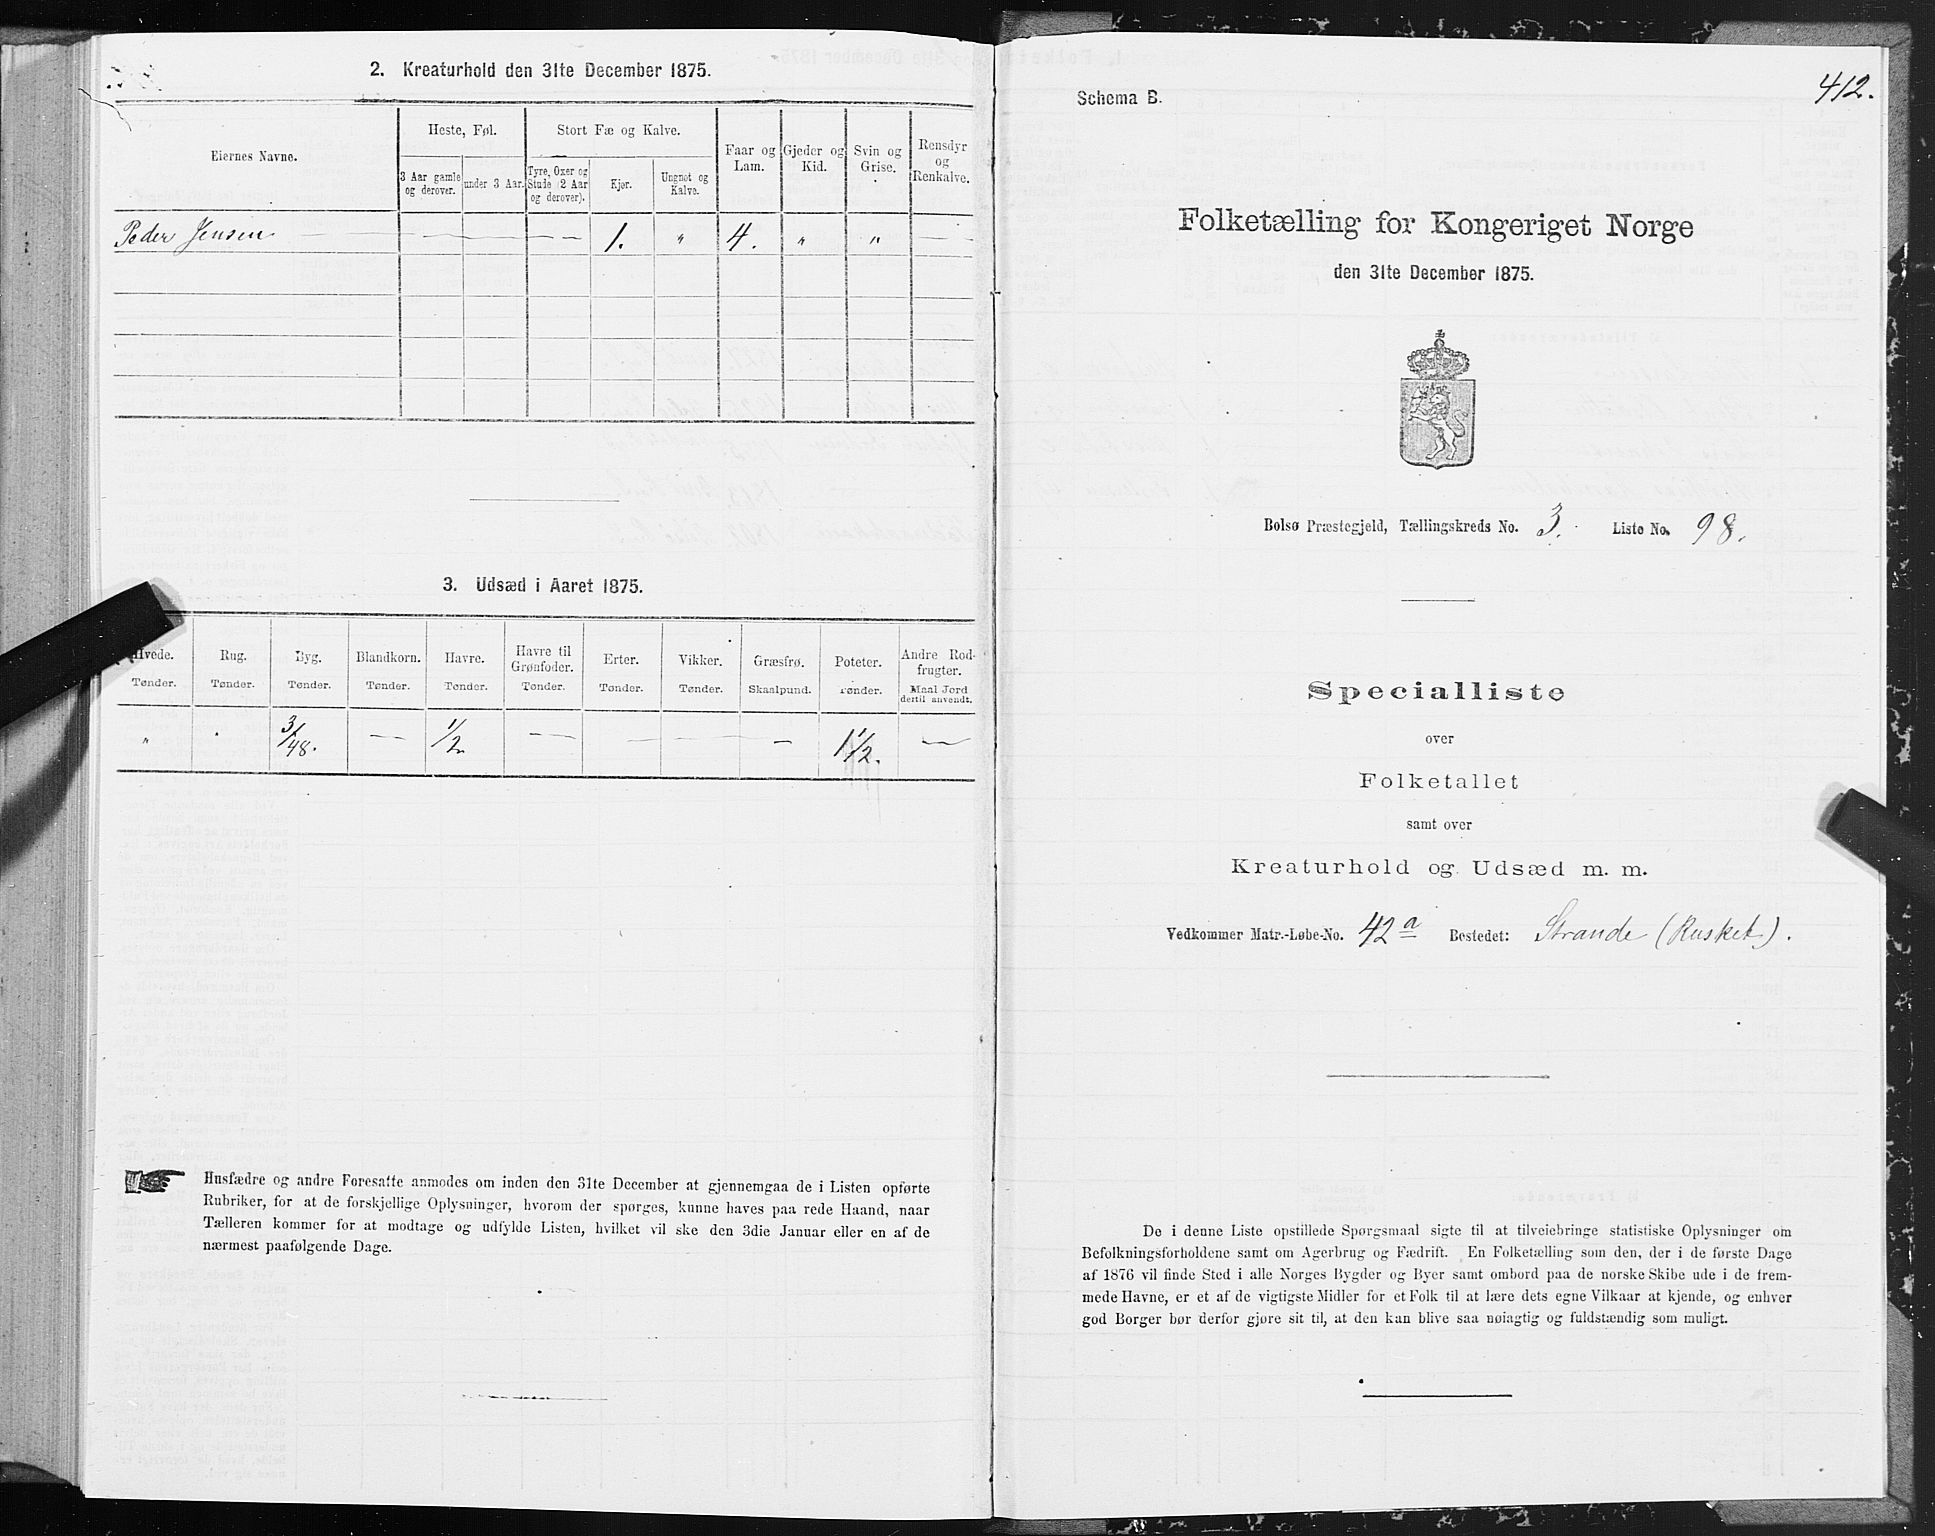 2. Kreaturhold den 31te December 1875.
Eiernes Navne.
Heste, Føl.
Stort Fæ og Kalve.
Faar og Lam.
Gjeder og Kid.
Svin og Grise.
Rensdyr og Renkalve.
3 Aar gamle og derover.
under 3 Aar.
Tyre, Oxer og Stude (2 Aar og derover).
Kjør.
Ungnøt og Kalve.
Peder Jensen — — — — — 1. " 4. " " — —
3. Udsæd i Aaret 1875.
Hvede. Rug. Byg. Blandkorn. Havre. Havre til Grønfoder. Erter. Vikker. Græsfrø. Poteter. Andre Rodfrugter.
Tønder. Tønder. Tønder. Tønder. Tønder. Tønder. Tønder. Tønder. Skaalpund. Tønder. Maal Jord dertil anvendt.
" . 3/48. — 1/2 — — — — 1 1/2. —
Husfædre og andre Foresatte anmodes om inden den 31te December at gjennemgaa de i Listen opførte
Rubriker, for at de forskjellige Oplysninger, hvorom der spørges, kunne haves paa rede Haand, naar
Tælleren kommer for at modtage og udfylde Listen, hvilket vil ske den 3die Januar eller en af de
nærmest paafølgende Dage.
412.
Schema B.
Folketælling for Kongeriget Norge
den 31te December 1875.
Bolsø Præstegjeld, Tællingskreds No. 3. Liste No. 98.
Specialliste
over
Folketallet
samt over
Kreaturhold og Udsæd m. m.
Vedkommer Matr.-Løbe-No. 42 a Bostedet: Strande (Rusket).
De i denne Liste opstillede Spørgsmaal sigte til at tilveiebringe statistiske Oplysninger om
Befolkningsforholdene samt om Agerbrug og Fædrift. En Folketælling som den, der i de første Dage
af 1876 vil finde Sted i alle Norges Bygder og Byer samt ombord paa de norske Skibe ude i de frem-
mede Havne, er et af de vigtigste Midler for et Folk til at lære dets egne Vilkaar at kjende, og enhver
god Borger bør derfor gjøre sit til, at den kan blive saa nøiagtig og fuldstændig som muligt.